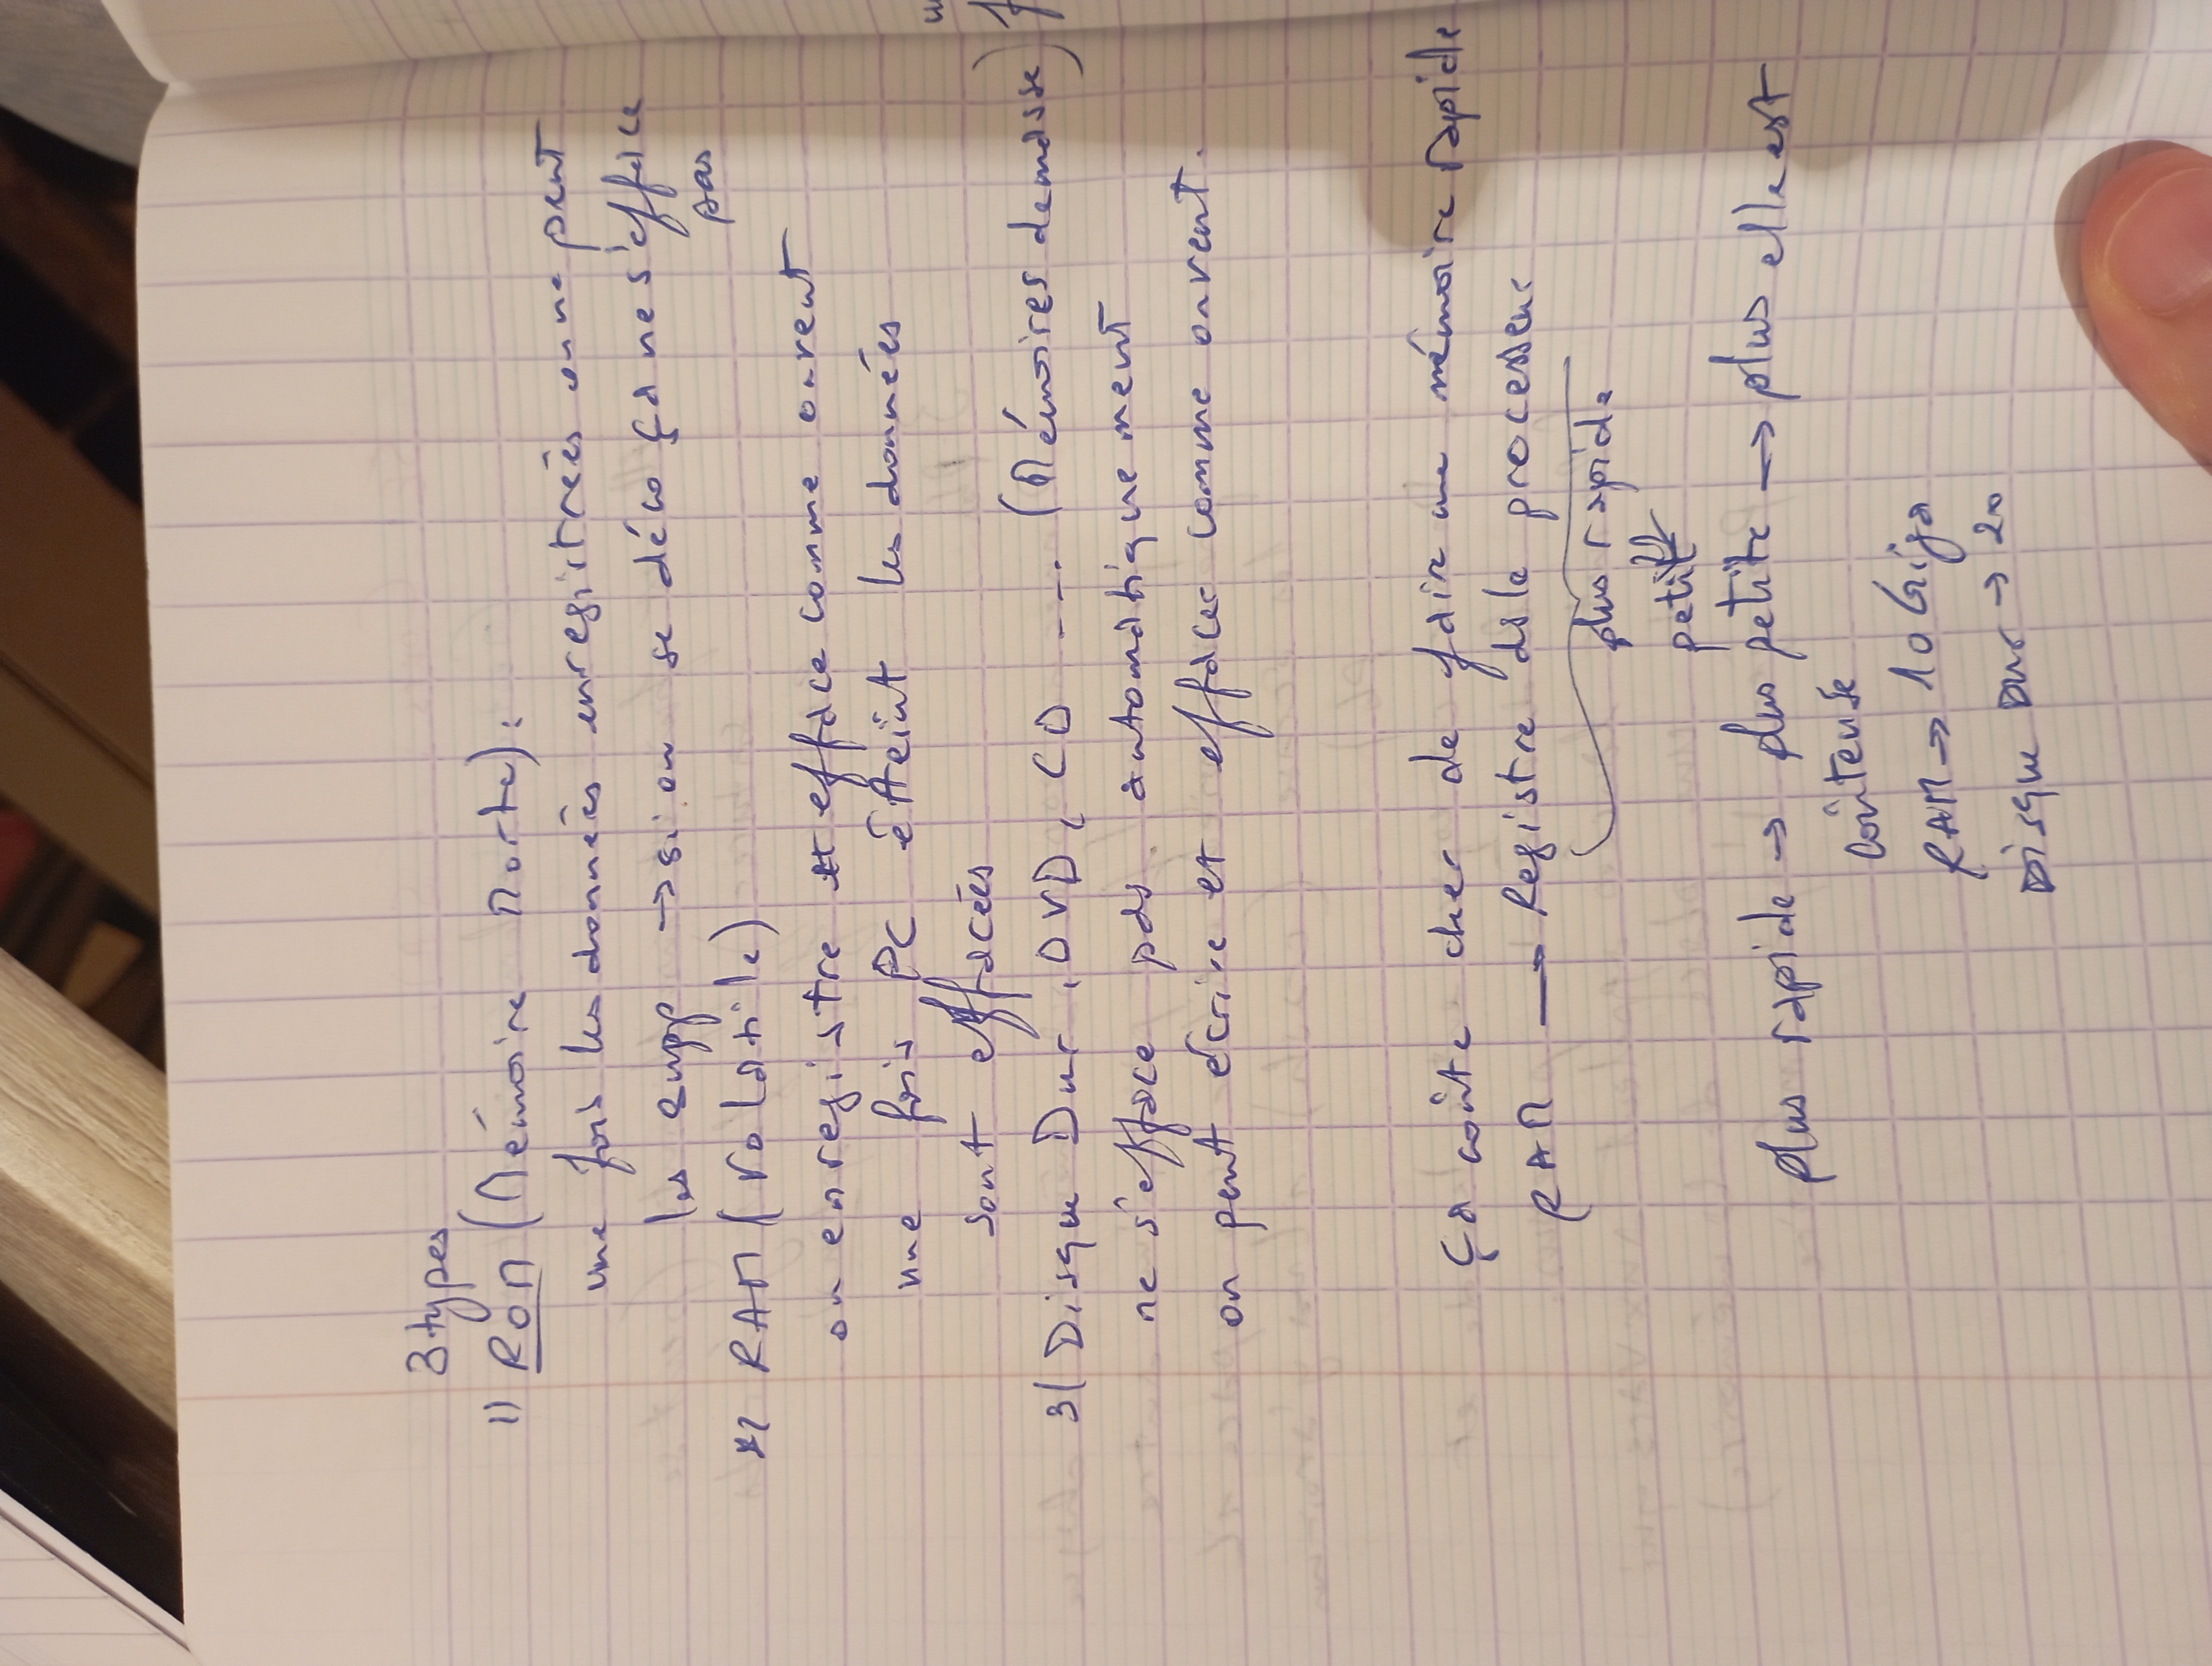 3 types
1) ROM (Mémoire Morte) :
une fois les données enregistrées on ne peut
les supp → si on se déco ça ne s'efface
pas
2) RAM (Volatile)
on enregistre et efface comme on veut
une fois PC éteint les données
sont effacées
3) Disque Dur, DVD, CD ---- (Mémoires de masse)
ne s'efface pas automatiquement
on peut écrire et effacer comme on veut.
Ça coûte cher de faire une mémoire rapide
RAM → Registre de le processeur
plus rapide
petit
plus rapide → plus petite → plus elle est
coûteuse
RAM → 10 Giga
Disque Dur → 200